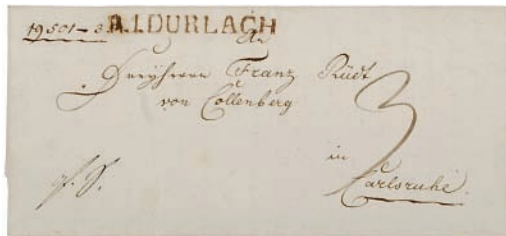 R.1.DURLACH
An
Freyherrn Franz Rüdt
von Collenberg
in
Carlsruhe.
3